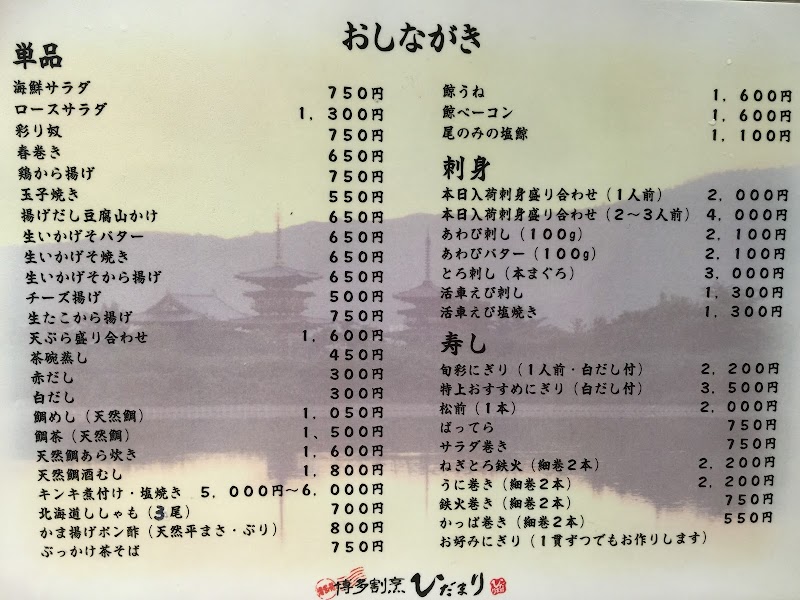 おしながき
単品
海鮮サラダ 750円
ロースサラダ 1,300円
彩り奴 750円
春巻き 650円
鶏から揚げ 750円
玉子焼き 550円
揚げだし豆腐山かけ 650円
生いかげそバター 650円
生いかげそ焼き 650円
生いかげそから揚げ 650円
チーズ揚げ 500円
生たこから揚げ 750円
天ぷら盛り合わせ 1,600円
茶碗蒸し 450円
赤だし 300円
白だし 300円
鯛めし(天然鯛) 1,050円
鯛茶(天然鯛) 1、500円
天然鯛あら炊き 1,600円
天然鯛酒むし 1,800円
キンキ煮付け・塩焼き 5,000円〜6,000円
北海道ししゃも(3尾) 700円
かま揚げポン酢(天然平まさ・ぶり) 800円
ぶっかけ茶そば 750円
鯨うね 1,600円
鯨ベーコン 1,600円
尾のみの塩鯨 1,100円
刺身
本日入荷刺身盛り合わせ(1人前) 2,000円
本日入荷刺身盛り合わせ(2〜3人前) 4,000円
あわび刺し(100g) 2,100円
あわびバター(100g) 2,100円
とろ刺し(本まぐろ) 3,000円
活車えび刺し 1,300円
活車えび塩焼き 1,300円
寿し
旬彩にぎり(1人前・白だし付) 2,200円
特上おすすめにぎり(白だし付) 3,500円
松前(1本) 2,000円
ばってら 750円
サラダ巻き 750円
ねぎとろ鉄火(細巻2本) 2,200円
うに巻き(細巻2本) 2,200円
鉄火巻き(細巻2本) 750円
かっぱ巻き(細巻2本) 550円
お好みにぎり(1貫ずつでもお作りします)
博多割烹 ひだまり